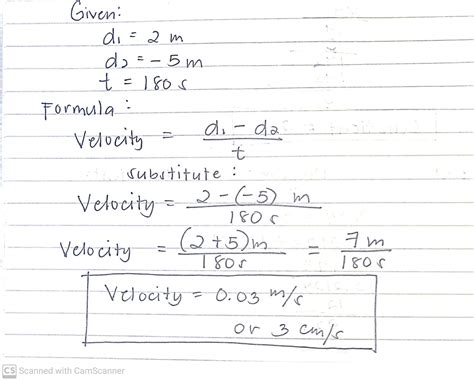 Given:
d₁ = 2 m
d₂ = - 5 m
t = 180 s
Formula :
Velocity = d₁ - d₂ / t
substitute :
Velocity = 2 - (-5) m / 180 s
Velocity = (2+5) m / 180 s = 7 m / 180 s
Velocity = 0.03 m/s
or 3 cm/s
CS Scanned with CamScanner